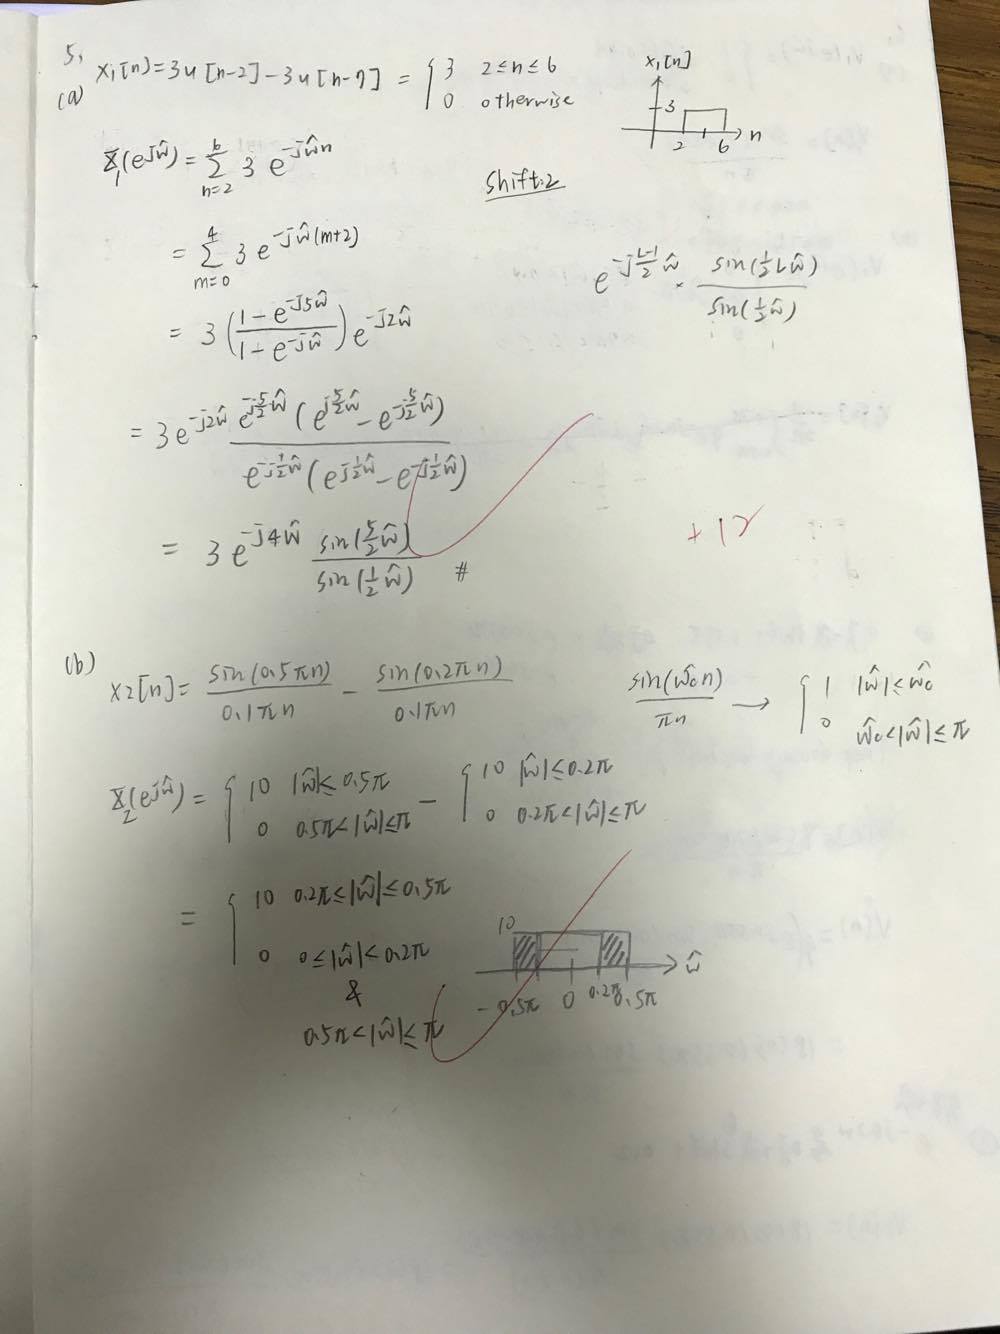 5.
(a) x₁[n] = 3u[n-2] - 3u[n-7] = { 3 2≤n≤6
0 otherwise
x₁[n]
3
2 6 n
X₁(e^{jŵ}) = Σ_{n=2}^{6} 3 e^{-jŵn}
shift:2
= Σ_{m=0}^{4} 3 e^{-jŵ(m+2)}
e^{-j\frac{L-1}{2}ŵ} · \frac{sin(\frac{1}{2}Lŵ)}{sin(\frac{1}{2}ŵ)}
= 3 ( \frac{1-e^{-j5ŵ}}{1-e^{-jŵ}} ) e^{-j2ŵ}
= 3 e^{-j2ŵ} \frac{e^{-j\frac{5}{2}ŵ} ( e^{j\frac{5}{2}ŵ} - e^{-j\frac{5}{2}ŵ} )}{e^{-j\frac{1}{2}ŵ} ( e^{j\frac{1}{2}ŵ} - e^{-j\frac{1}{2}ŵ} )}
= 3 e^{-j4ŵ} \frac{sin(\frac{5}{2}ŵ)}{sin(\frac{1}{2}ŵ)} #
+12
(b) x₂[n] = \frac{sin(0.5πn)}{0.1πn} - \frac{sin(0.2πn)}{0.1πn}
\frac{sin(ŵ₀n)}{πn} → { 1 |ŵ|≤ŵ₀
0 ŵ₀<|ŵ|≤π
X₂(e^{jŵ}) = { 10 |ŵ|≤0.5π - { 10 |ŵ|≤0.2π
0 0.5π<|ŵ|≤π 0 0.2π<|ŵ|≤π
= { 10 0.2π≤|ŵ|≤0.5π
0 0≤|ŵ|<0.2π
&
0.5π<|ŵ|≤π
10
ŵ
-0.5π 0 0.2π 0.5π